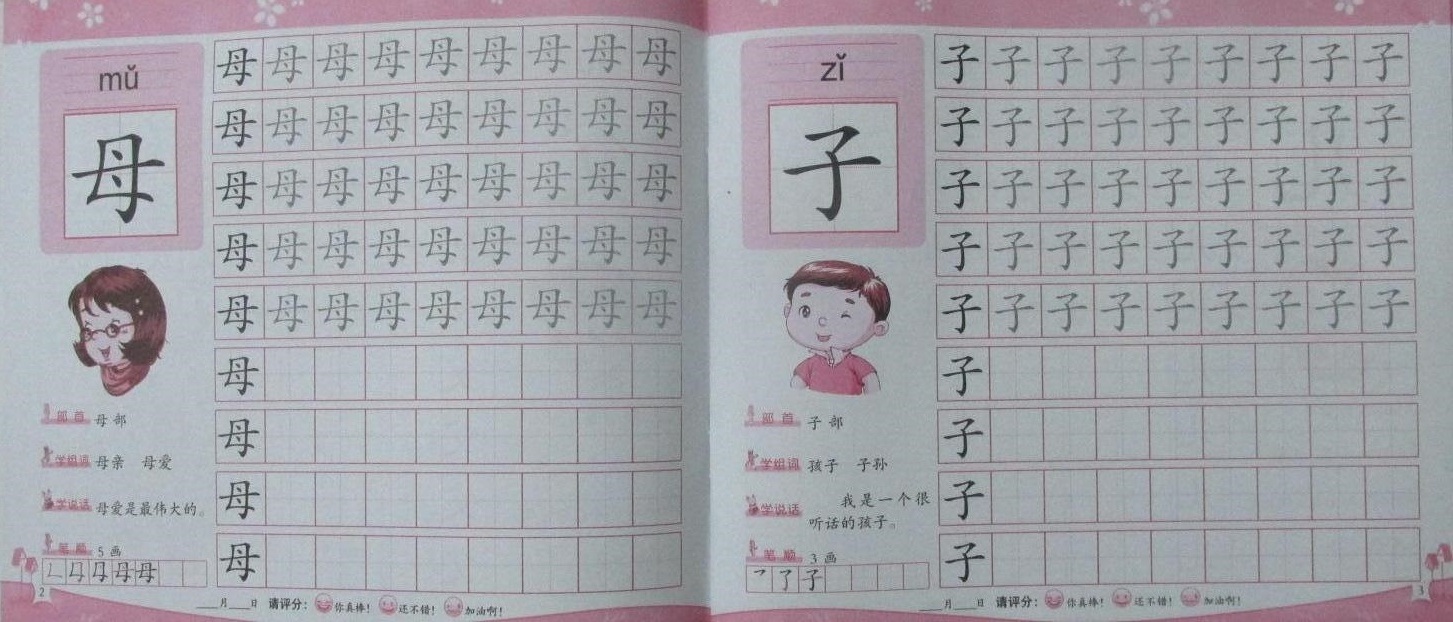 mǔ
母
母 母 母 母 母 母 母 母 母
母 母 母 母 母 母 母 母 母
母 母 母 母 母 母 母 母 母
母 母 母 母 母 母 母 母 母
母 母 母 母 母 母 母 母 母
母
母
母
母
部首 母部
学组词 母亲 母爱
学说话 母爱是最伟大的。
笔顺 5画
母
2
___月___日 请评分: 你真棒! 还不错! 加油啊!
zǐ
子
子 子 子 子 子 子 子 子 子
子 子 子 子 子 子 子 子 子
子 子 子 子 子 子 子 子 子
子 子 子 子 子 子 子 子 子
子 子 子 子 子 子 子 子 子
子
子
子
子
部首 子部
学组词 孩子 子孙
学说话 我是一个很
听话的孩子。
笔顺 3画
乛 了 子
3
___月___日 请评分: 你真棒! 还不错! 加油啊!